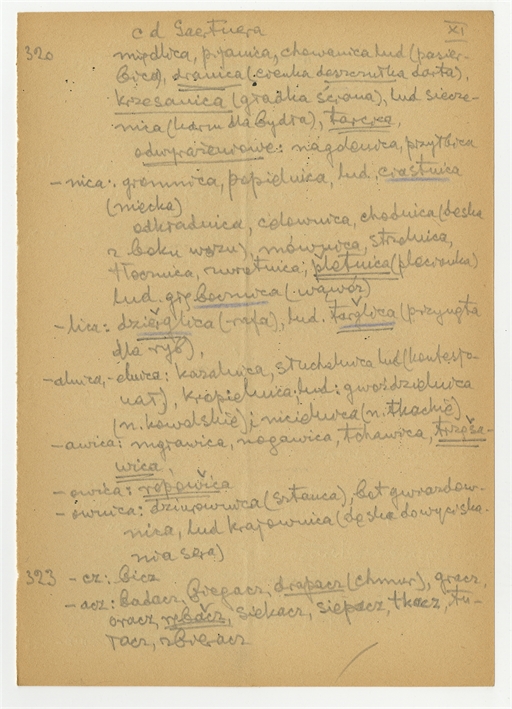 c d Gaertnera XI
320 mirdlica, pijanica, chowanica lud (pasier-
bica), dranica (cienka deszczułka darta),
krzesanica (gładka ściana), lud siecze-
nica (karm dla bydła), tarcica,
odwyrażeniowe: nagolenica, przyłbica
- nica: gromnica, popielnica, lud. ciastnica
(niecka)
odkładnica, celownica, chodnica (deska
z boku wozu), mównica, strzelnica,
tłocznica, zwrotnica; plotnica (plecionka)
lud. głębocznica (wąwóz)
- lica: dzierglica (rafa), lud. targlica (przynęta
dla ryb),
-alnica, -elnica: kazalnica, słuchalnica lud (konfesjo-
nał), kropielnica, lud: gwoździelnica
(n. kowalskie) i nicielnica (n. tkackie)
- awica: mgławica, nogawica, tchawica, trzęsa-
wica,
- owica: ropowica
- ownica: dziurownica (sztanca), bot gwiazdow-
nica, lud krajownica (deska do wyciska-
nia sera)
323 - cz: bicz
- acz: badacz, biegacz, drapacz (chmur), gracz,
oracz, rębacz, siekacz, siepacz, tkacz, tu-
łacz, zbieracz